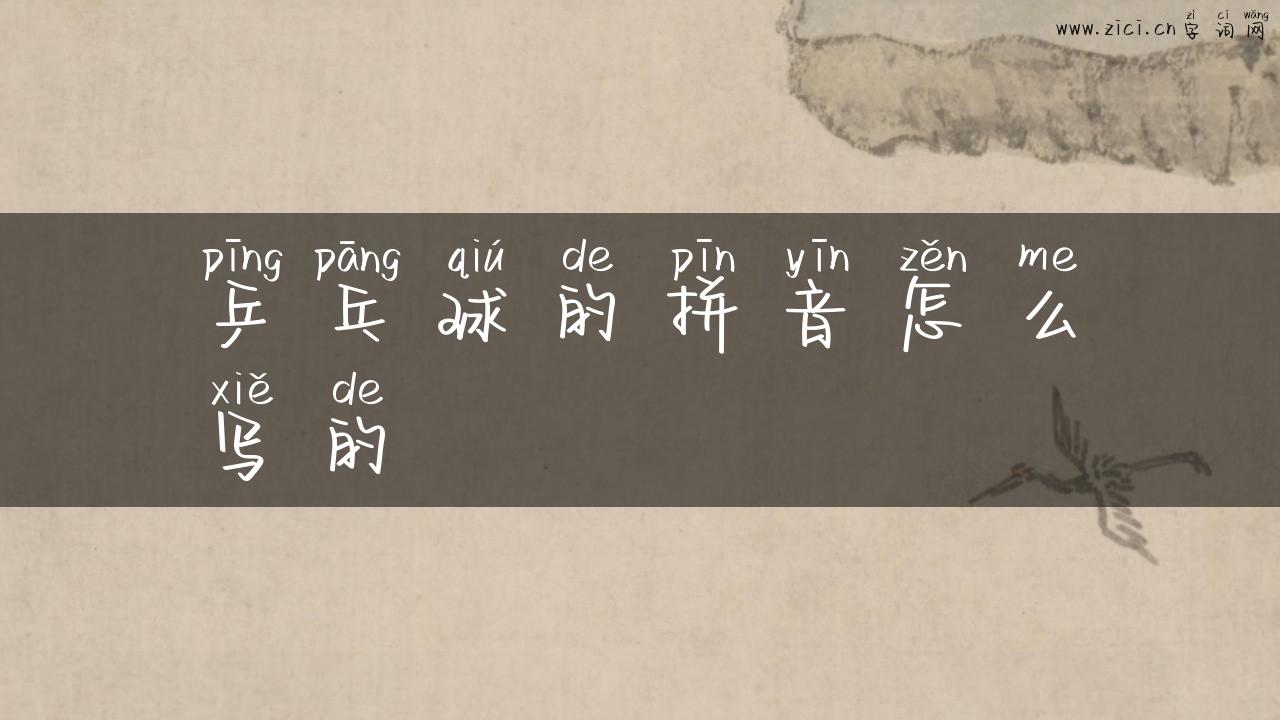 zì cí wǎng
www.zici.cn 字 词 网
pīng pāng qiú de pīn yīn zěn me
乒 乓 球 的 拼 音 怎 么
xiě de
写 的